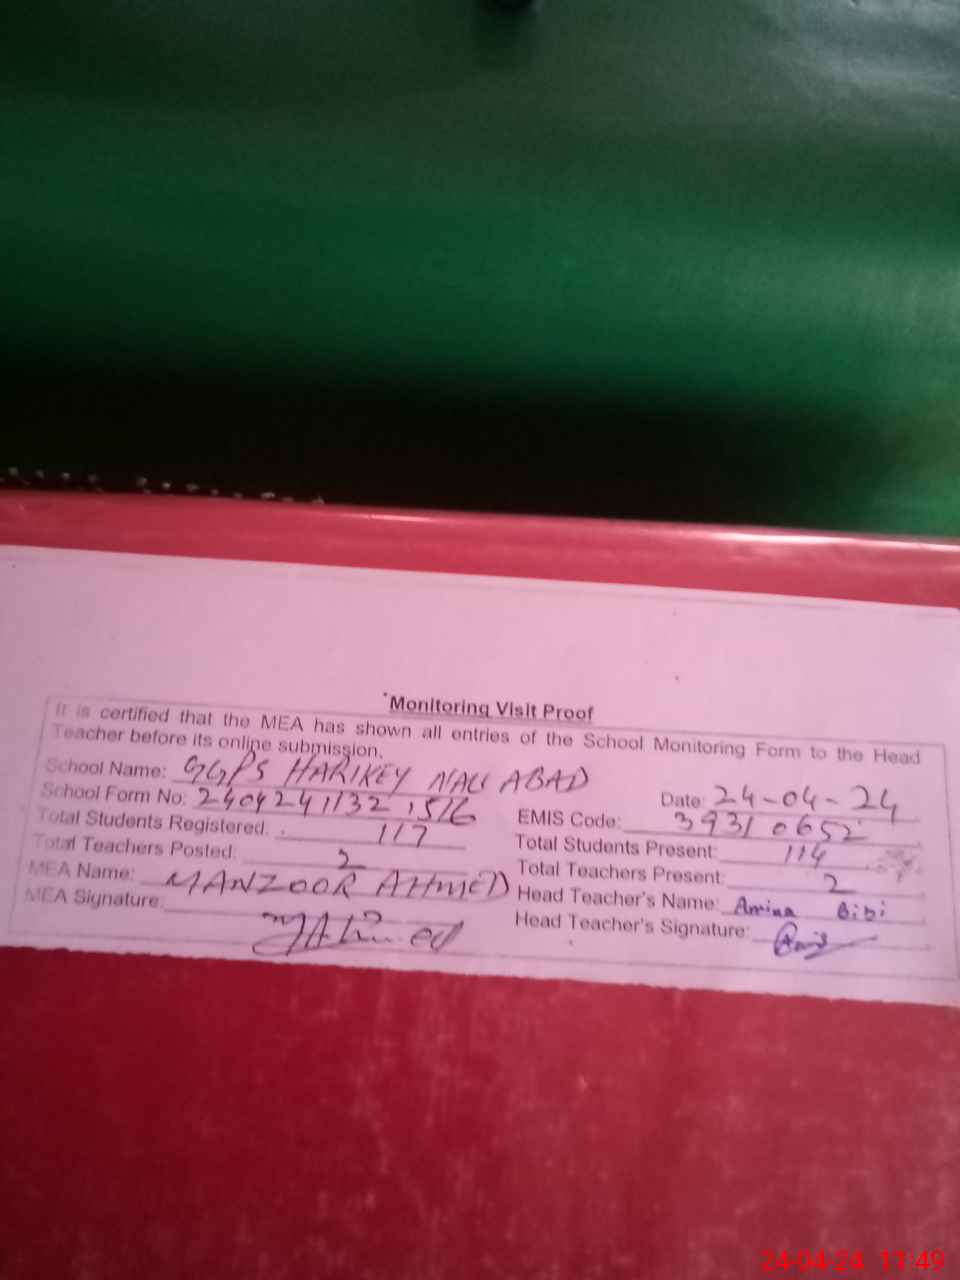 Monitoring Visit Proof
It is certified that the MEA has shown all entries of the School Monitoring Form to the Head
Teacher before its online submission.
School Name: GGPS HARIKEY NAU ABAD
Date: 24-04-24
School Form No: 2404241132 1516
EMIS Code: 39310652
Total Students Registered: 117
Total Students Present: 114
Total Teachers Posted: 2
Total Teachers Present: 2
MEA Name: MANZOOR AHMED
Head Teacher's Name: Amina Bibi
MEA Signature: MAhmed
Head Teacher's Signature:
24-04-24 11:49